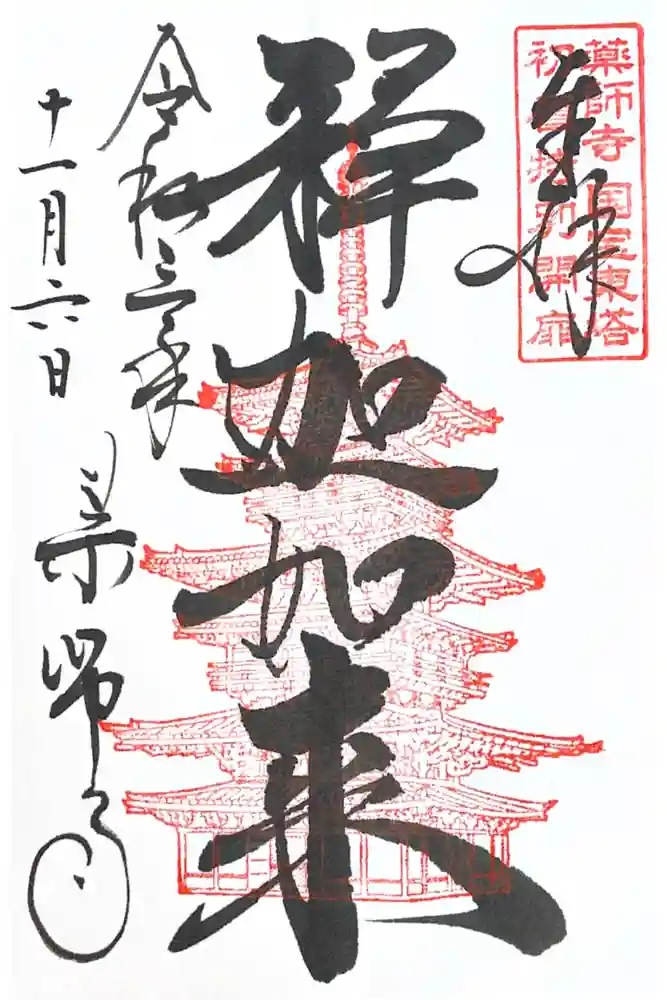 薬師寺 国宝東塔
初重特別開扉
奉拝
釋迦如来
令和三年
十一月六日
薬師寺